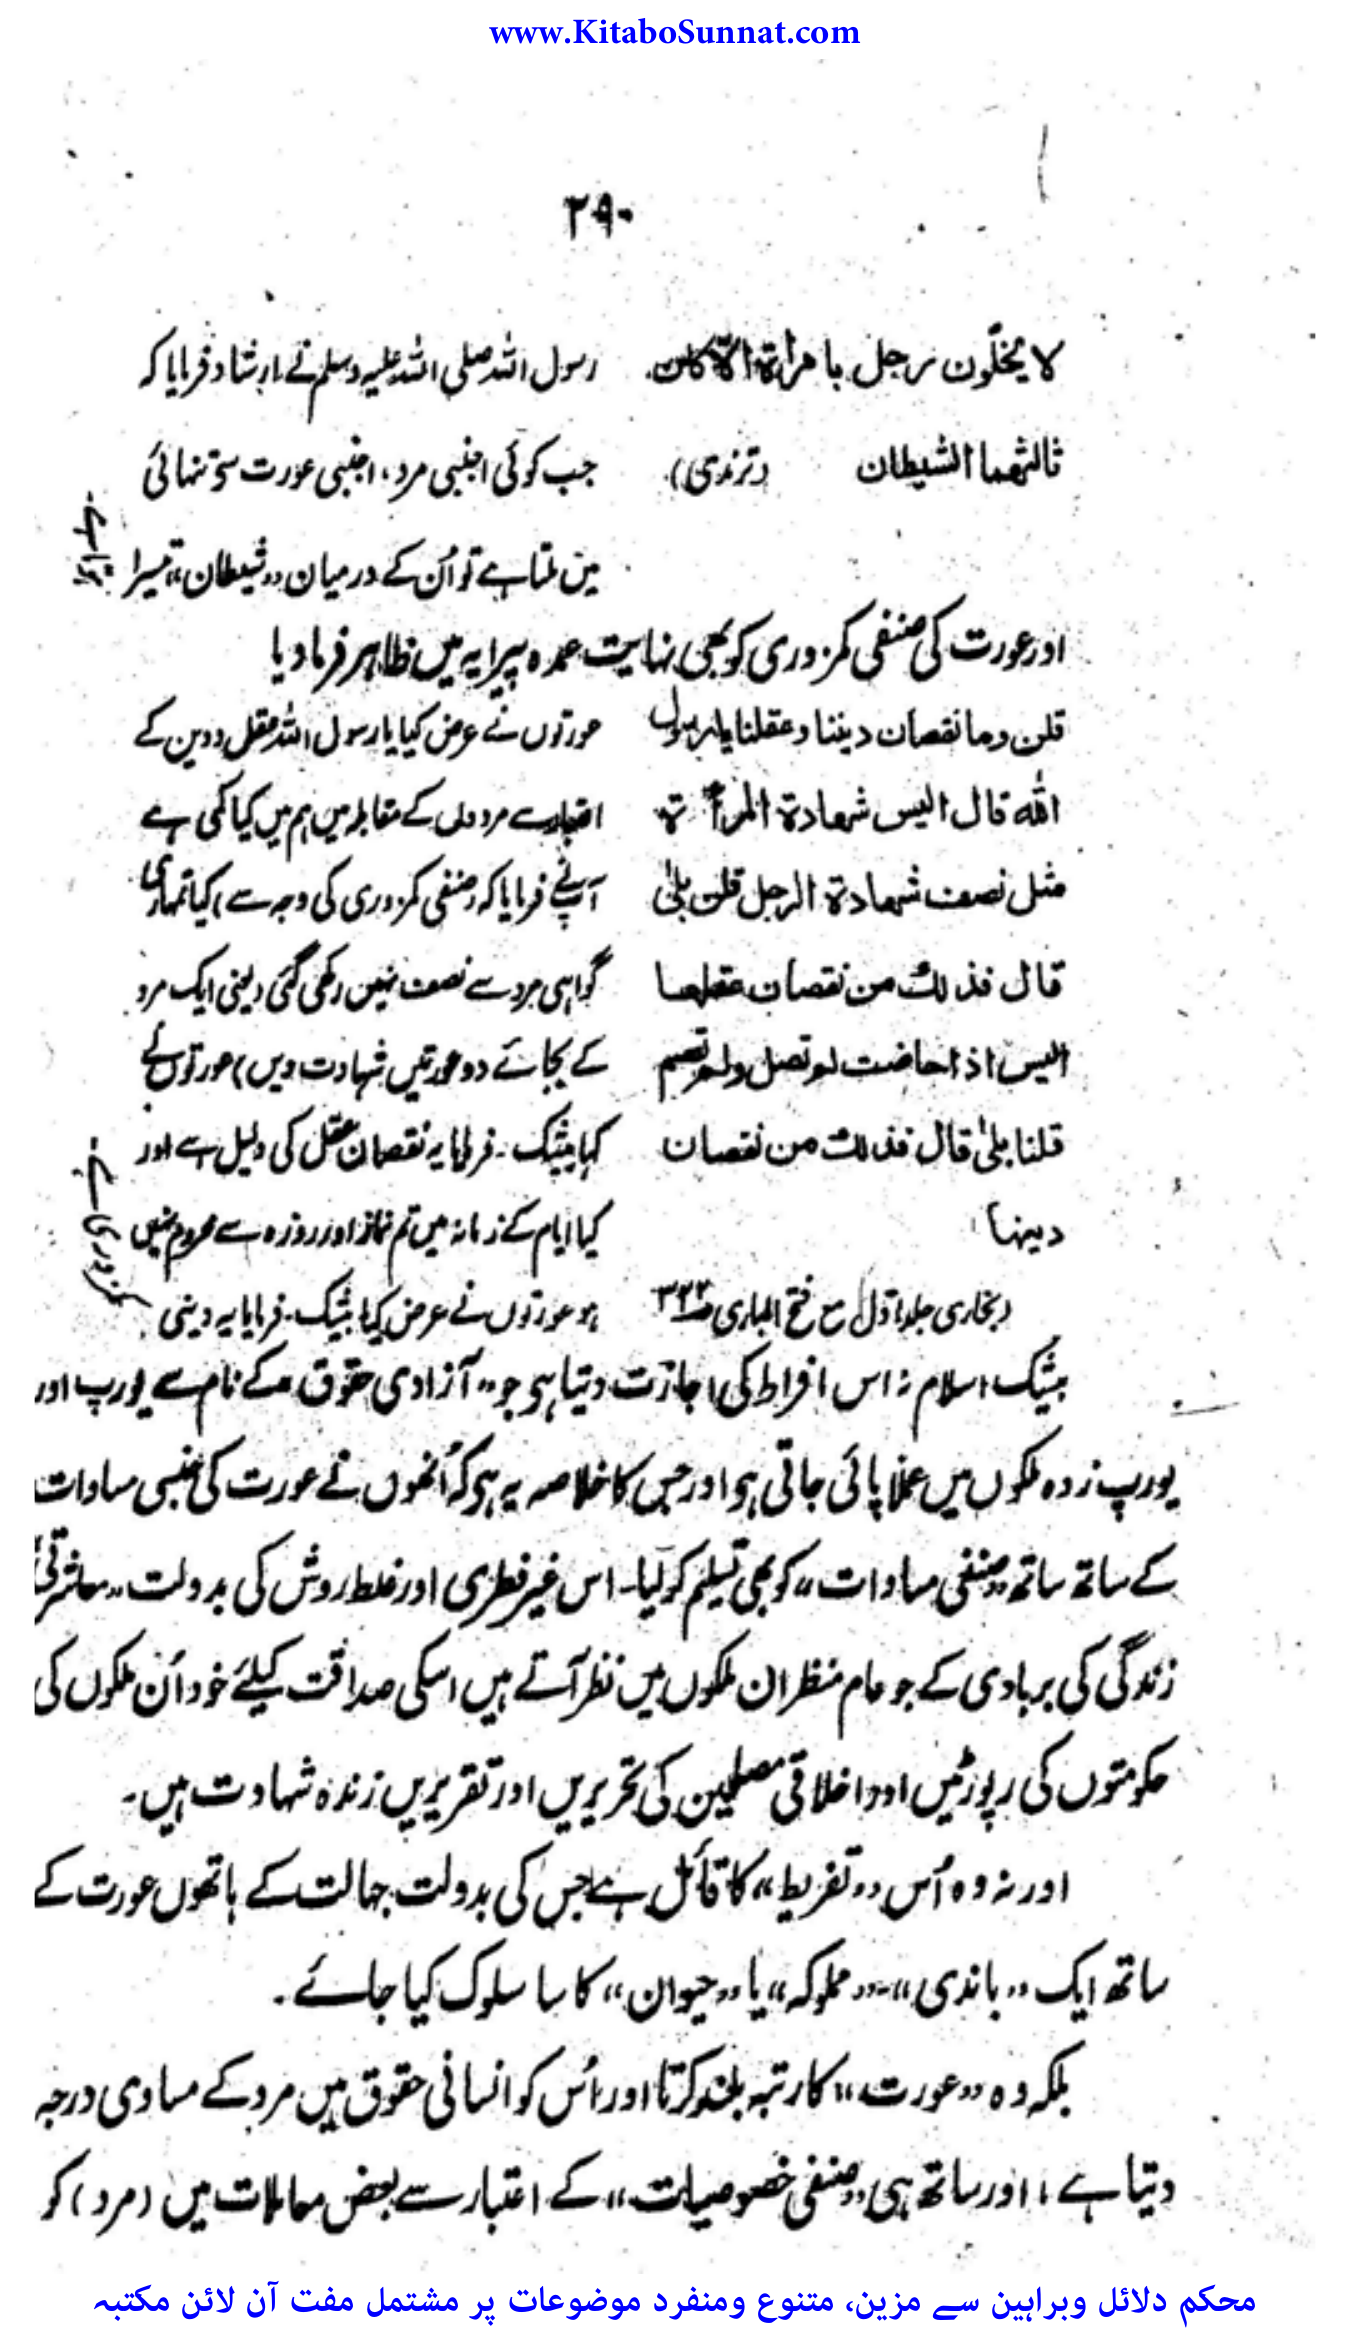 www.KitaboSunnat.com
۲۹۰
لا يخلّون رجل بامرأة الّا كان
ثالثهما الشيطان (ترمذی)
رسول اللہ صلی اللہ علیہ وسلم نے ارشاد فرمایا کہ
جب کوئی اجنبی مرد، اجنبی عورت سے تنہائی
میں ملتا ہے تو اُن کے درمیان "شیطان" تیسرا
ہوتا ہے۔
اور عورت کی صنفی کمزوری کو بھی نہایت عمدہ پیرایہ میں ظاہر فرما دیا
قلن وما نقصان ديننا وعقلنا يا رسول
الله قال اليس شهادة المرأة
مثل نصف شهادة الرجل قلن بلىٰ
قال فذلك من نقصان عقلها
اليس اذا حاضت لم تصل ولم تصم
قلنا بلىٰ قال فذلك من نقصان
دينها
(بخاری جلد اوّل مع فتح الباری ص۳۲۳
عورتوں نے عرض کیا یا رسول اللہ عقل و دین کے
اعتبار سے مردوں کے مقابلہ میں ہم میں کیا کمی ہے
آپ نے فرمایا کہ (صنفی کمزوری کی وجہ سے) کیا تمہاری
گواہی مرد سے نصف نہیں رکھی گئی (یعنی ایک مرد
کے بجائے دو عورتیں شہادت دیں) عورتوں نے
کہا بیشک۔ فرمایا یہ نقصان عقل کی دلیل ہے اور
کیا ایام کے زمانہ میں تم نماز اور روزہ سے محروم نہیں
ہو عورتوں نے عرض کیا بیشک۔ فرمایا یہ دینی
کمزوری ہے۔
بیشک اسلام نہ اس افراط کی اجازت دیتا ہی جو "آزادی حقوق" کے نام سے یورپ اور
یورپ زدہ ملکوں میں عملاً پائی جاتی ہی اور جس کا خلاصہ یہ ہی کہ اُنھوں نے عورت کی جنسی مساوات
کے ساتھ ساتھ "صنفی مساوات" کو بھی تسلیم کر لیا۔ اس غیر فطری اور غلط روش کی بدولت "معاشرتی
زندگی کی بربادی کے جو عام منظر ان ملکوں میں نظر آتے ہیں اسکی صداقت کیلئے خود اُن ملکوں کی
حکومتوں کی رپورٹیں اور اخلاقی مصلحین کی تحریریں اور تقریریں زندہ شہادت ہیں۔
اور نہ وہ اُس "تفریط" کا قائل ہے جس کی بدولت جہالت کے ہاتھوں عورت کے
ساتھ ایک "باندی"۔ "مملوکہ" یا "حیوان" کا سا سلوک کیا جائے۔
بلکہ وہ "عورت" کا رتبہ بلند کرتا اور اُس کو انسانی حقوق میں مرد کے مساوی درجہ
دیتا ہے، اور ساتھ ہی "صنفی خصوصیات" کے اعتبار سے بعض معاملات میں (مرد) کو
محکم دلائل وبراہین سے مزین، متنوع ومنفرد موضوعات پر مشتمل مفت آن لائن مکتبہ